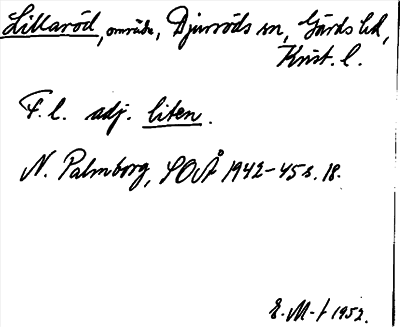 Lillaröd, område, Djurröds sn, Gärds hd,
Krist. l.
F. l. adj. liten.
N. Palmborg, SOÅ 1942-45 s. 18.
E. M-t 1952.